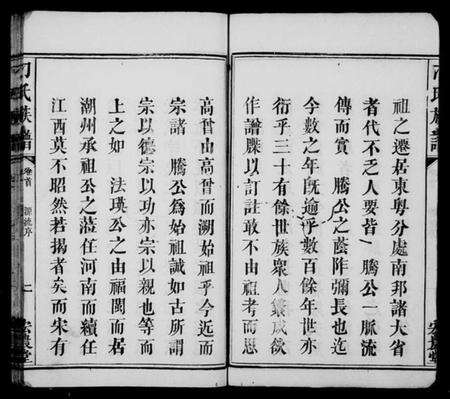 祖之遷居東粤分處南邦諸大省
者代不乏人要皆 騰公一脈流
傳而實 騰公之蔭阼彌長也迄
今數之年既逾乎數百餘年世亦
衍乎三十有餘世族衆人繁咸欲
作譜牒以訂註敢不由祖考而思
高曾由高曾而溯始祖乎今近而
宗諸 騰公為始祖誠如古所謂
宗以德宗以功亦宗以親也等而
上之如 法瑛公之由福閩而居
潮州承祖公之蒞任河南而續任
江西莫不昭然若揭者矣而朱有
刁氏族譜
卷首
源流序
二